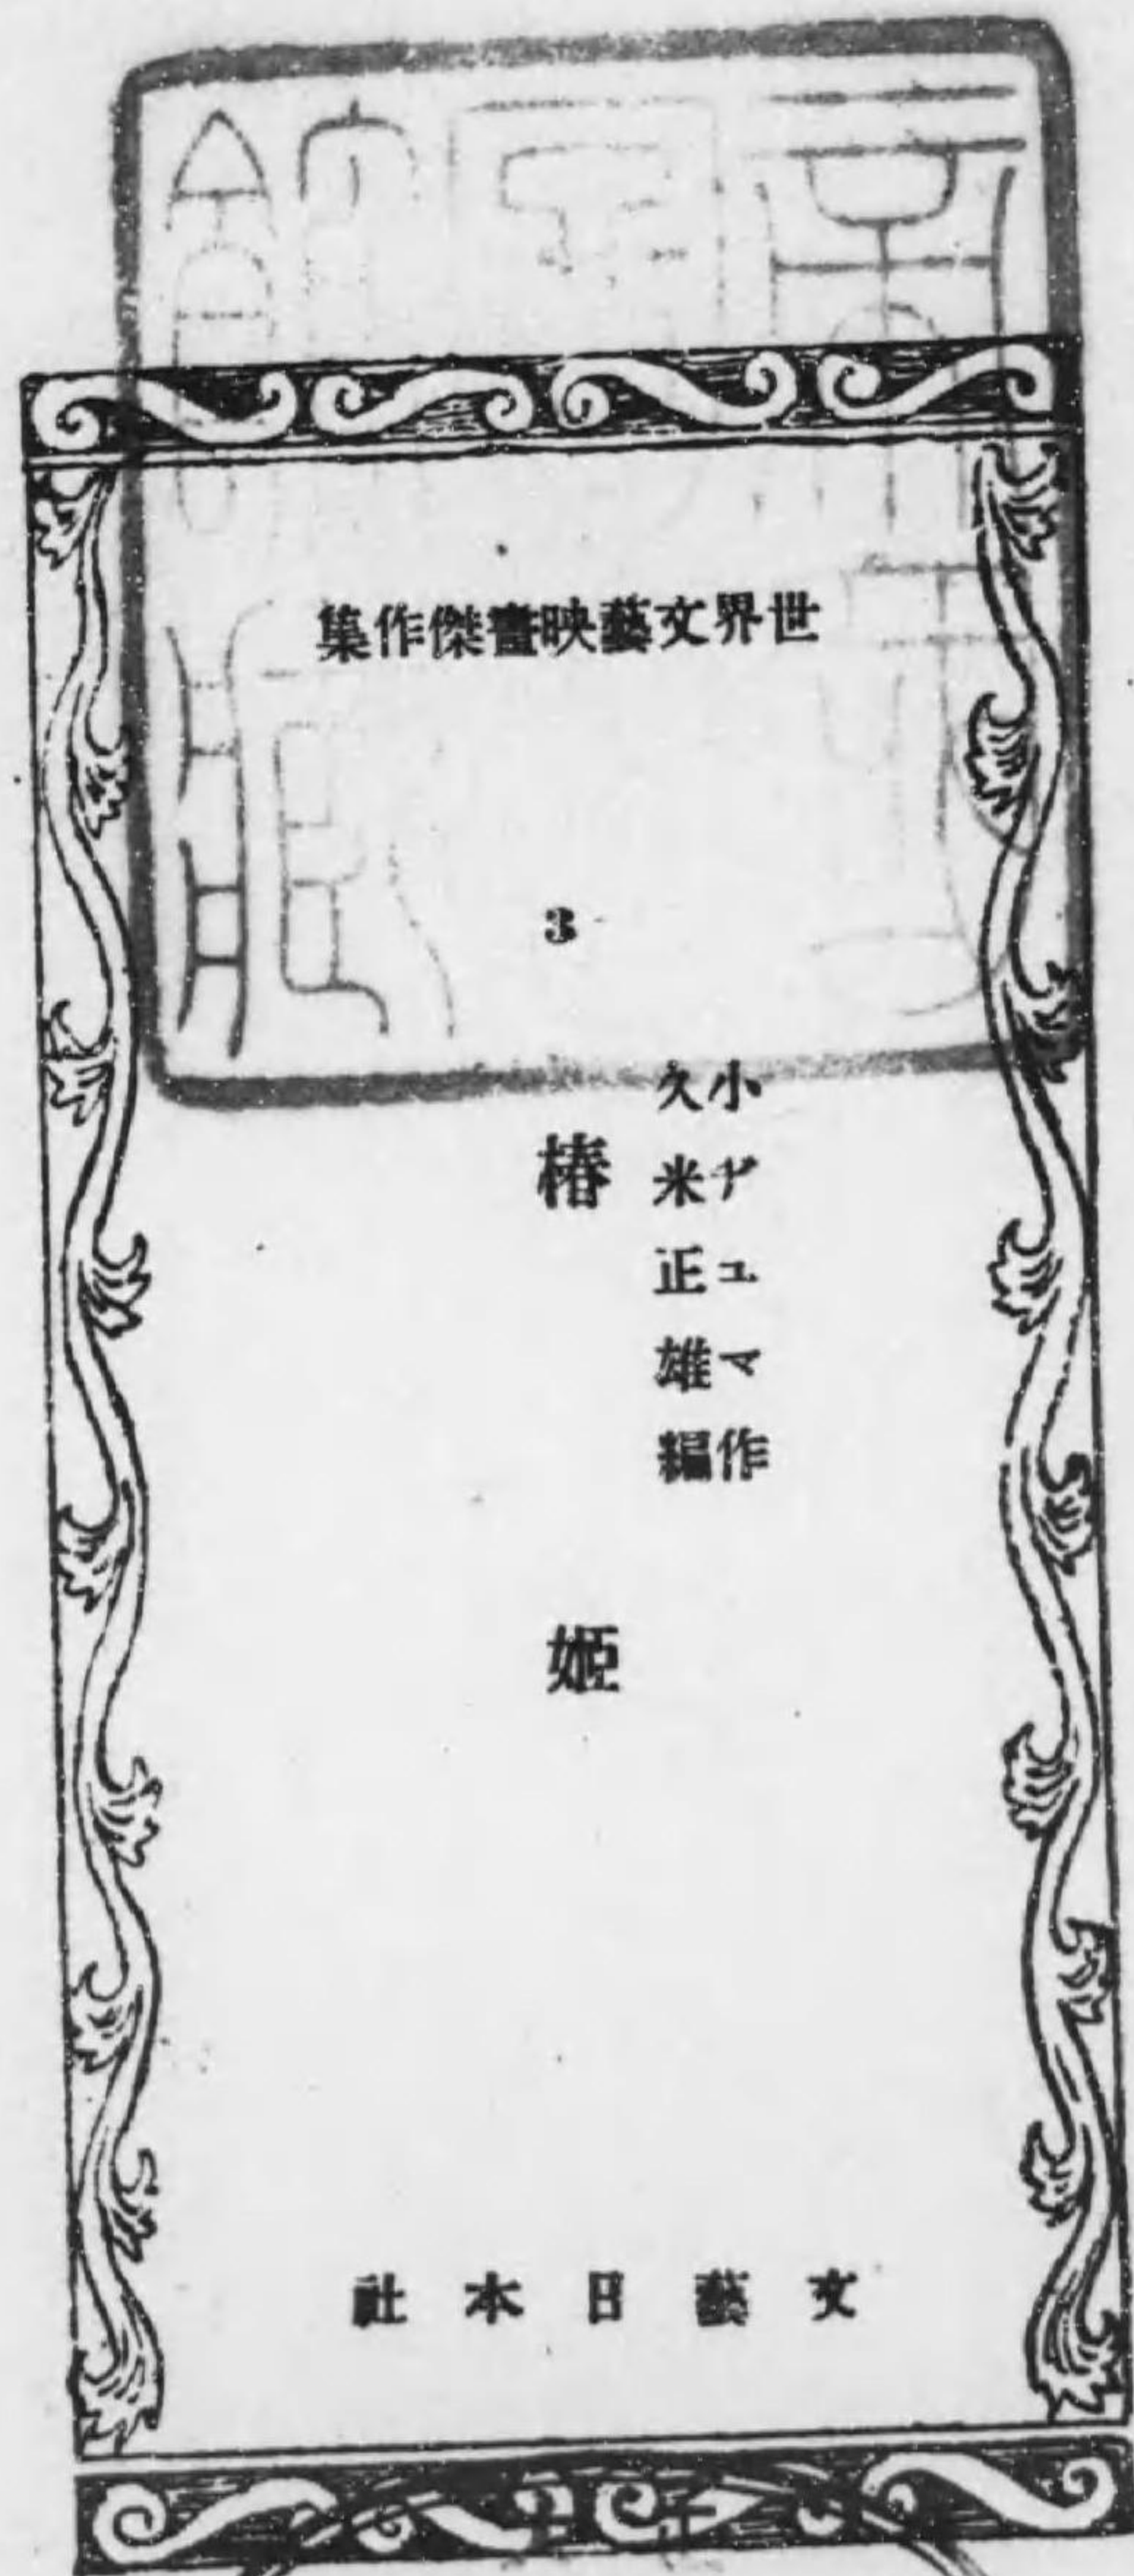 世界文藝映畫傑作集
3
小デユマ作
久米正雄編
椿姬
文藝日本社